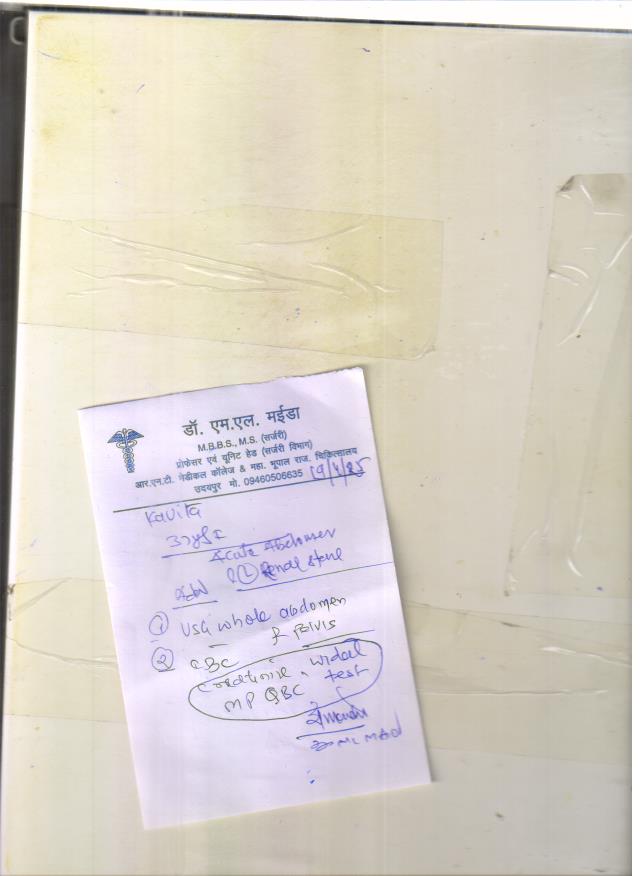 डॉ. एम.एल. मईडा
M.B.B.S., M.S. (सर्जरी)
प्रोफेसर एवं यूनिट हेड (सर्जरी विभाग)
आर.एन.टी. मेडीकल कॉलेज & महा. भूपाल राज. चिकित्सालय
उदयपुर मो. 09460506635
Kavita
Acute Abdomen
(L) Renal stone
① USG whole abdomen
& Pelvis
② CBC
creatinine, widal
test
MP QBC